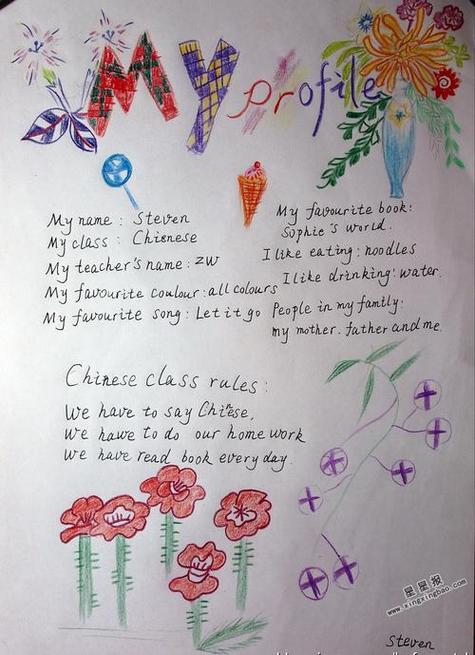 My profile
My name: Steven
My class: Chienese
My teacher's name: ZW
My favourite coulour: all colours
My favourite song: Let it go
My favourite book:
Sophie's world.
I like eating: noodles
I like drinking: water.
People in my family:
my mother. father and me.
Chinese class rules:
We have to say Chinese,
We hawe to do our home work
We have read book every day.
星星报
www.xingxingbao.com
Steven